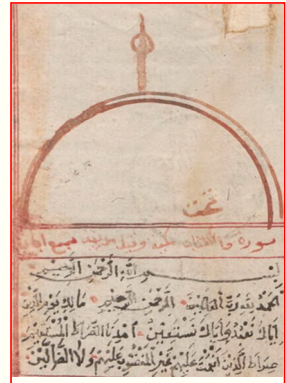 سورة فاتحة الكتاب مكية وقيل مدنية سبع ايات
بسم الله الرحمن الرحيم
الحمد لله رب العالمين الرحمن الرحيم مالك يوم الدين
اياك نعبد واياك نستعين اهدنا الصراط المستقيم
صراط الذين انعمت عليهم غير المغضوب عليهم ولا الضالين